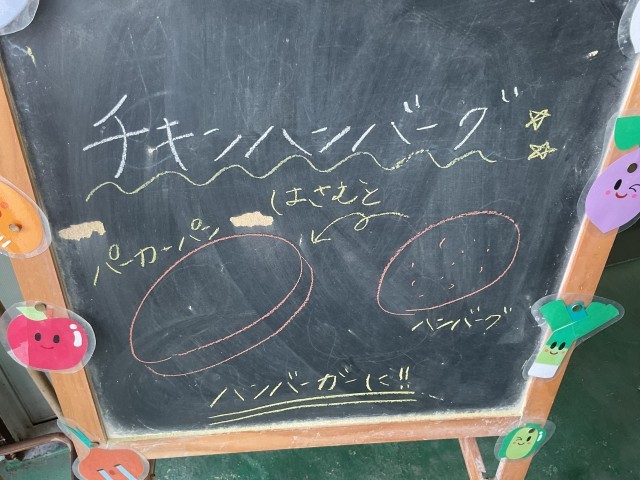 チキンハンバーグ
はさむと
パーカーパン
ハンバーグ
ハンバーガーに!!